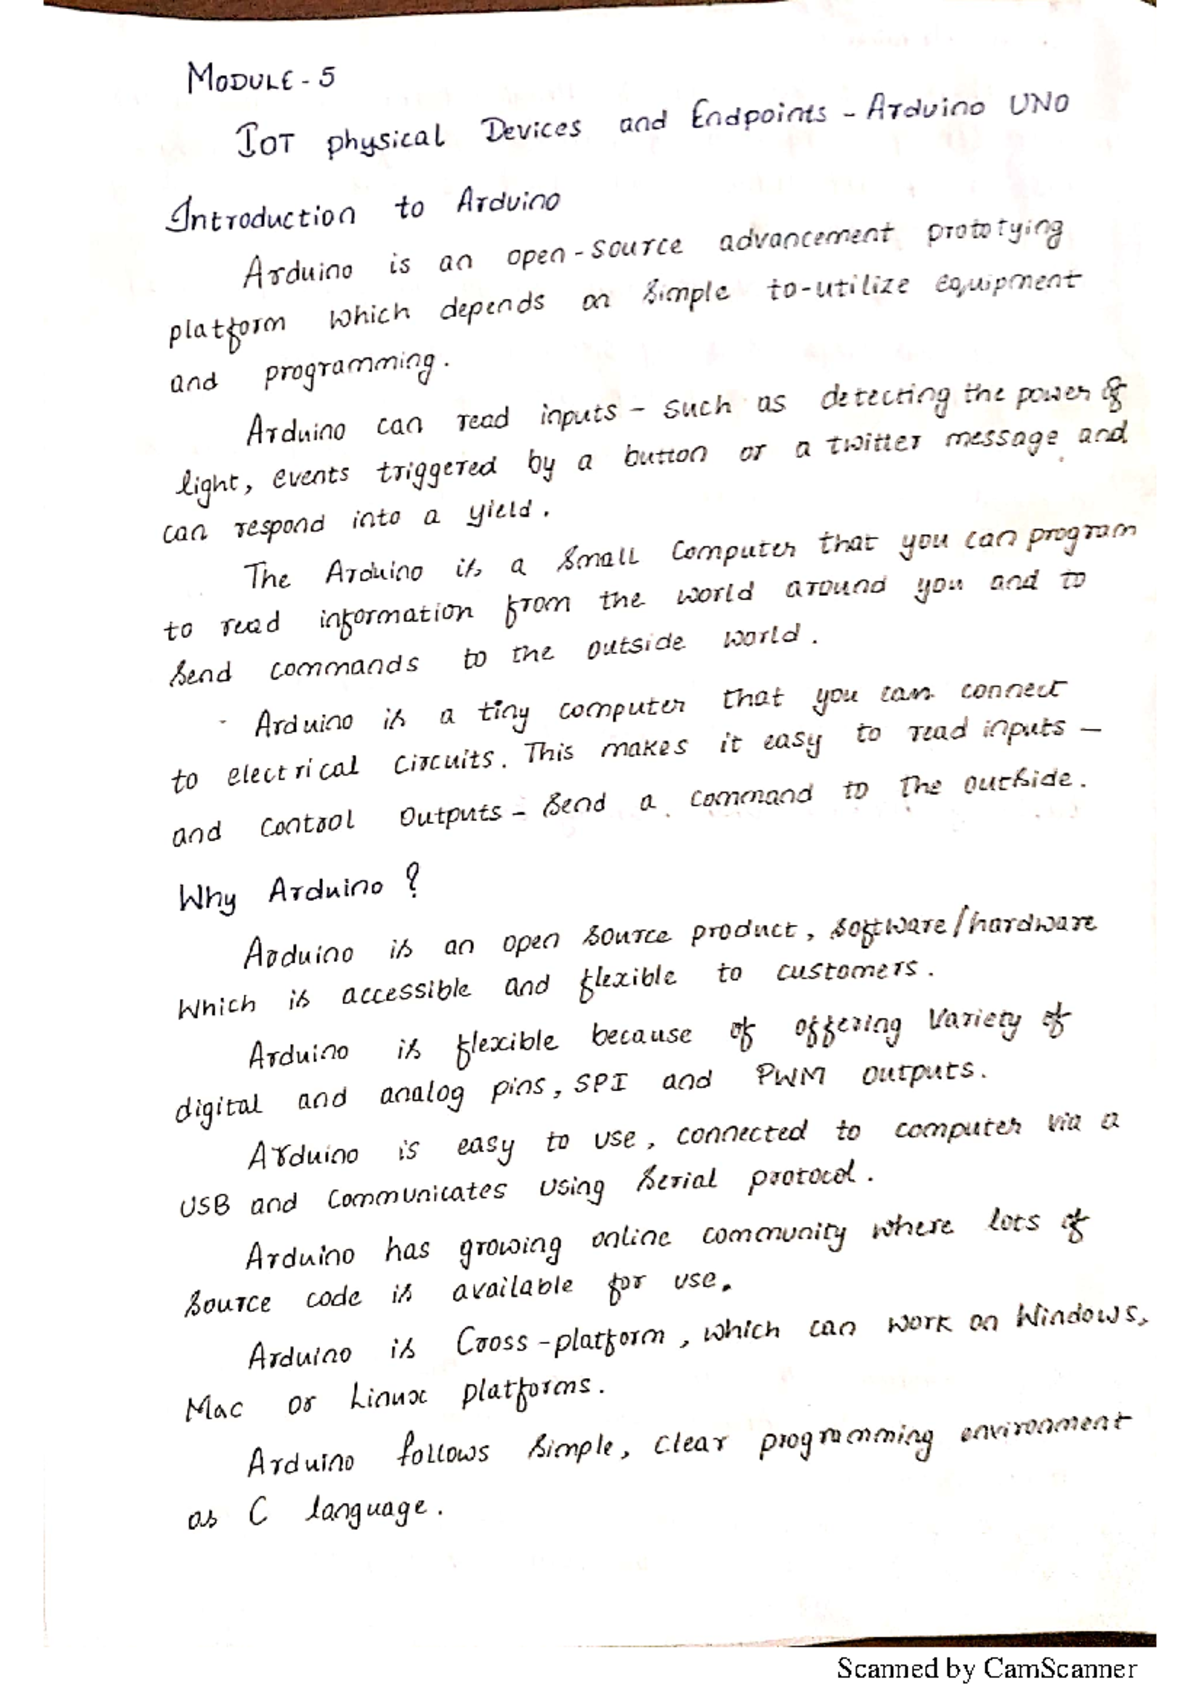 MODULE - 5
IOT physical Devices and Endpoints - Arduino UNO
Introduction to Arduino
Arduino is an open-source advancement prototying
platform which depends on simple to-utilize equipment
and programming.
Arduino can read inputs - such as detecting the power of
light, events triggered by a button or a twitter message and
can respond into a yield.
The Arduino is a small computer that you can program
to read information from the world around you and to
send commands to the outside world.
Arduino is a tiny computer that you can connect
to electrical circuits. This makes it easy to read inputs -
and control outputs - send a command to the outside.
Why Arduino ?
Arduino is an open source product, software/hardware
which is accessible and flexible to customers.
Arduino is flexible because of offering variety of
digital and analog pins, SPI and PWM outputs.
Arduino is easy to use, connected to computer via a
USB and communicates using serial protocol.
Arduino has growing online community where lots of
source code is available for use.
Arduino is Cross-platform, which can work on Windows,
Mac or Linux platforms.
Arduino follows simple, clear programming environment
as C language.
Scanned by CamScanner